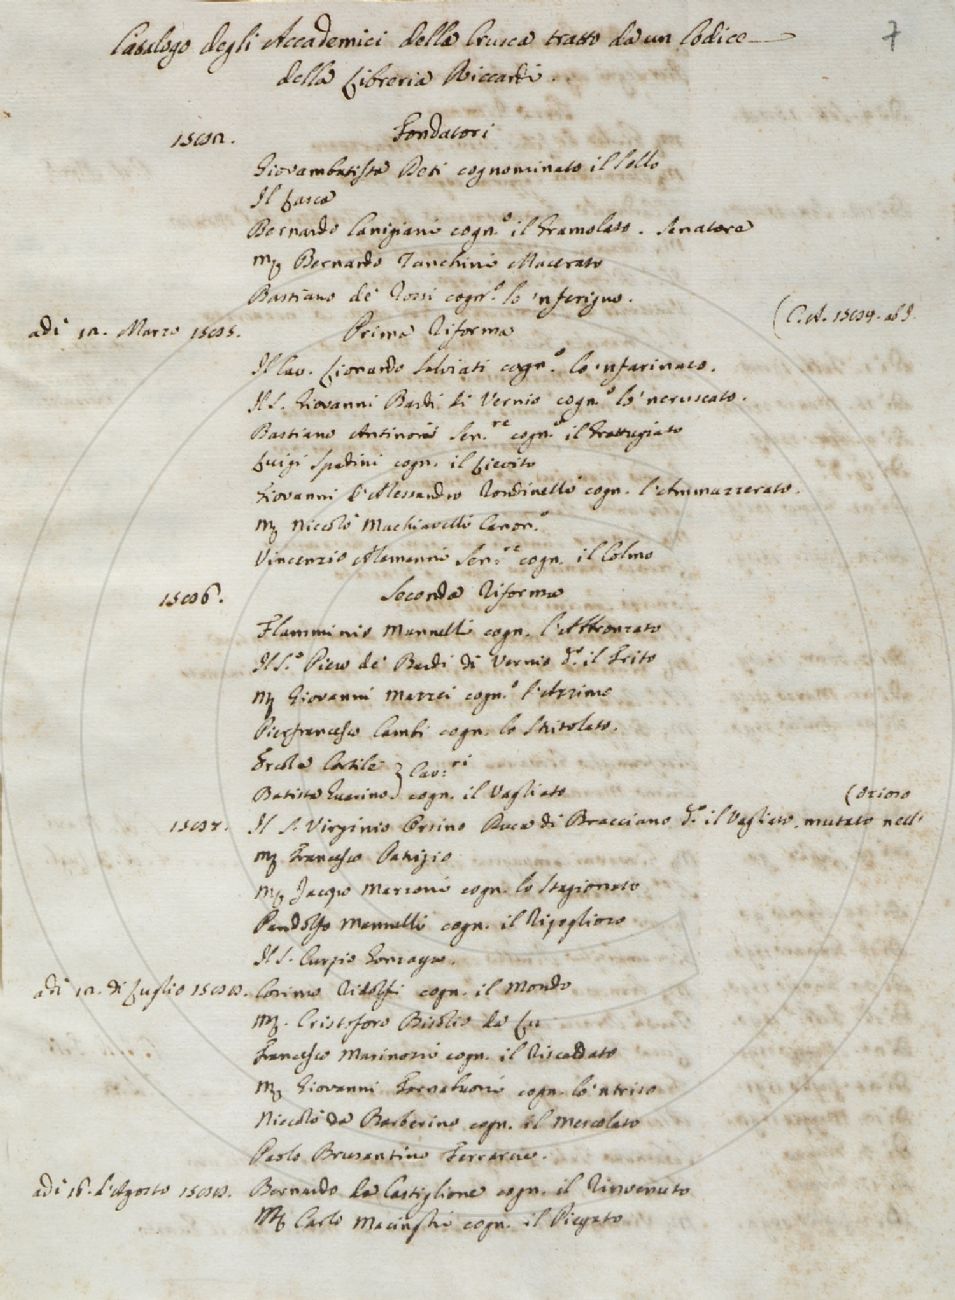 7
Catalogo degli Accademici della Crusca tratto da un Codice
della Libreria Riccardi.
Fondatori
Giovambatista Deti cognominato il Sollo
Il Lasca
Bernardo Canigiani cogn.º il Gramolato. Senatore
Mʳ Bernardo Zanchini Macerato
Bastiano de' Rossi cogn.º lo 'nferigno.
adi Marzo
Prima Riforma
Il Cav. Lionardo Salviati cogn.º lo 'nfarinato.
Il S. Giovanni Bardi di Vernio cogn.º lo 'ncruscato.
Bastiano Antinori Sen.ʳᵉ cogn.º il Grattugiato
Luigi Spadini cogn. il Lievito
Giovanni d'Alessandro Rondinelli cogn. l'Ammazzerato.
Mʳ Niccolò Machiavelli Canon.º
Vincenzio Alamanni Sen.ʳᵉ cogn. il Colmo
Seconda Riforma
Flamminio Mannelli cogn.
Il S.º Piero de' Bardi di Vernio d.º il Trito
Mʳ Giovanni Mazzei cogn.º l'Azzimo
Pierfrancesco Cambi cogn. lo Stritolato.
Ercole Cortile } Cav.ʳⁱ
Batista Guarino } cogn. il Vagliato
(Ozioso
Il S. Virginio Orsino Duca di Bracciano d.º il Vagliato, mutato nell'
Mʳ Francesco Patrizio
Mʳ Jacopo Mazzoni cogn. lo Stagionato
Pandolfo Mannelli cogn. il Rigoglioso
Il S. Gonzaga.
adi di Luglio
Cosimo Ridolfi cogn. il Mondo
Mʳ. Cristoforo
Francesco Marinozzi cogn. il Riscaldato
Mʳ Giovanni cogn. lo 'ntriso
Niccolò da Barberino cogn. il Mescolato
Paolo Brusantino Ferrarese.
adi 16. d'Agosto
Bernardo da Castiglione cogn. il Rinvenuto
Mʳ Carlo Macinghi cogn. il Piegato